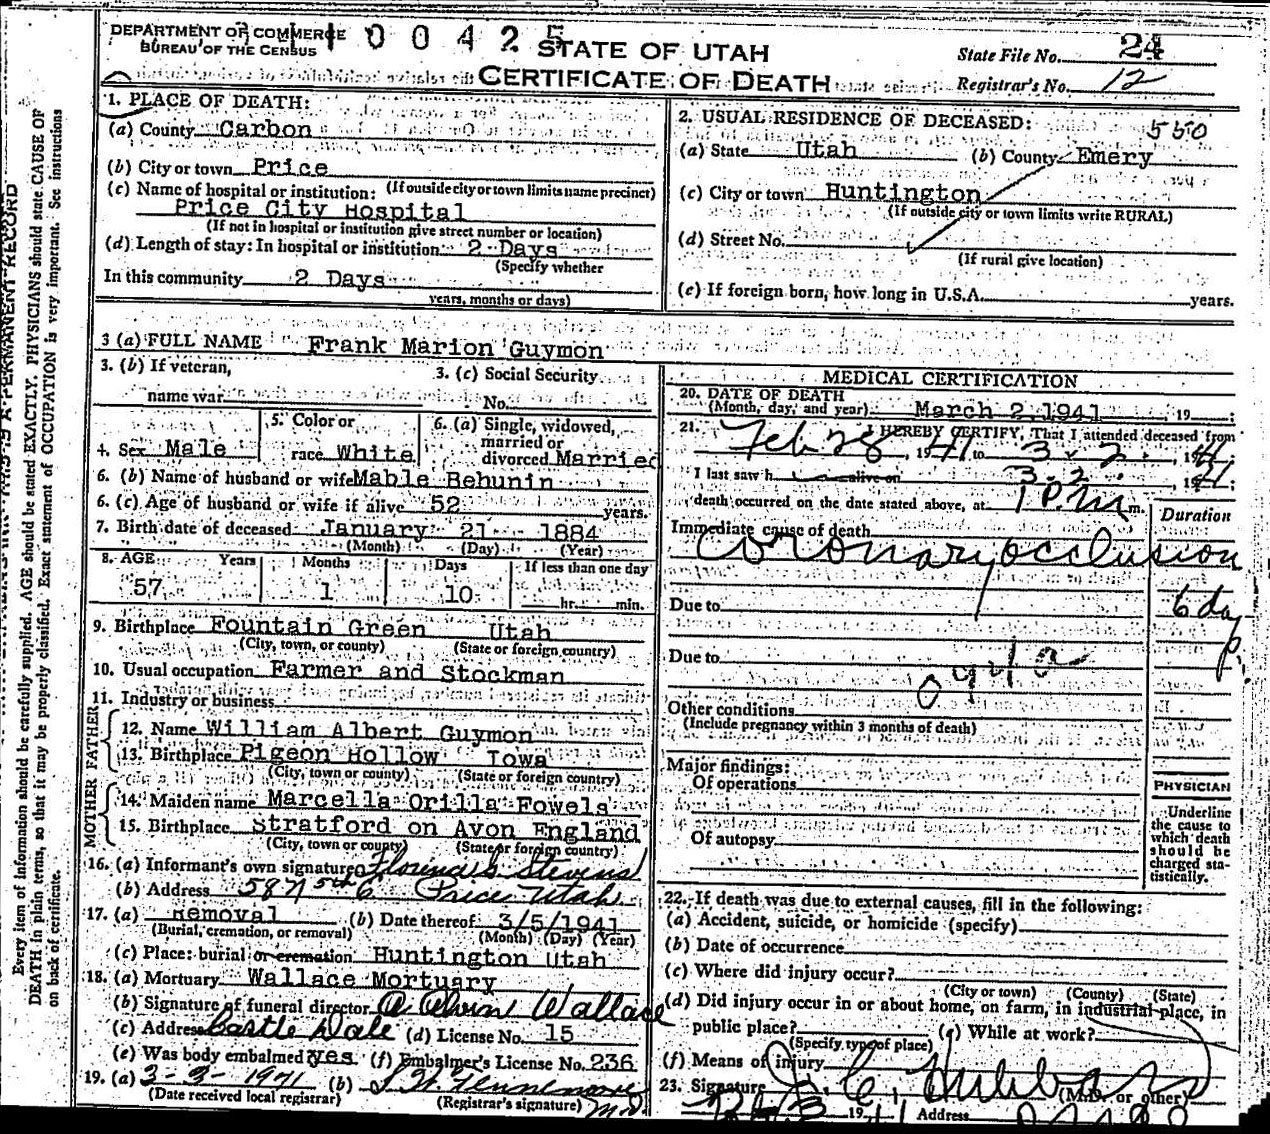 DEPARTMENT OF COMMERCE
BUREAU OF THE CENSUS
100425
STATE OF UTAH
CERTIFICATE OF DEATH
State File No. 24
Registrar's No. 12
1. PLACE OF DEATH:
(a) County Carbon
(b) City or town Price
(c) Name of hospital or institution: (If outside city or town limits name precinct)
Price City Hospital
(If not in hospital or institution give street number or location)
(d) Length of stay: In hospital or institution 2 Days
(Specify whether
In this community 2 Days
years, months or days)
2. USUAL RESIDENCE OF DECEASED: 550
(a) State Utah (b) County Emery
(c) City or town Huntington
(If outside city or town limits write RURAL)
(d) Street No.
(If rural give location)
(e) If foreign born, how long in U.S.A. years.
3 (a) FULL NAME Frank Marion Guymon
3. (b) If veteran, 3. (c) Social Security
name war No.
4. Sex Male
5. Color or
race White
6. (a) Single, widowed,
married or
divorced Married
6. (b) Name of husband or wife Mable Behunin
6. (c) Age of husband or wife if alive 52 years.
7. Birth date of deceased January 21 1884
(Month) (Day) (Year)
8. AGE Years Months Days If less than one day
57 1 10 hr. min.
9. Birthplace Fountain Green Utah
(City, town, or county) (State or foreign country)
10. Usual occupation Farmer and Stockman
11. Industry or business
FATHER
12. Name William Albert Guymon
13. Birthplace Pigeon Hollow Iowa
(City, town or county) (State or foreign country)
MOTHER
14. Maiden name Marcella Orilla Fowels
15. Birthplace Stratford on Avon England
(City, town or county) (State or foreign country)
16. (a) Informant's own signature Florence G Stevens
(b) Address Price Utah
17. (a) Removal (b) Date thereof 3/5/1941
(Burial, cremation, or removal) (Month) (Day) (Year)
(c) Place: burial or cremation Huntington Utah
18. (a) Mortuary Wallace Mortuary
(b) Signature of funeral director A Alvin Wallace
(c) Address Castle Dale (d) License No. 15
(e) Was body embalmed yes (f) Embalmer's License No. 236
19. (a) 3-3-1941 (b)
(Date received local registrar) (Registrar's signature)
MEDICAL CERTIFICATION
20. DATE OF DEATH
(Month, day, and year) March 2, 1941 19
21. I HEREBY CERTIFY, That I attended deceased from
Feb 28, 1941 to 3-2, 1941
I last saw h alive on 3-2, 1941;
death occurred on the date stated above, at 1 P.M m.
Duration
Immediate cause of death
Coronary occlusion
6 days
Due to
Due to
Other conditions
(Include pregnancy within 3 months of death)
Major findings:
Of operations
Of autopsy
PHYSICIAN
Underline
the cause to
which death
should be
charged sta-
tistically.
22. If death was due to external causes, fill in the following:
(a) Accident, suicide, or homicide (specify)
(b) Date of occurrence
(c) Where did injury occur?
(City or town) (County) (State)
(d) Did injury occur in or about home, on farm, in industrial place, in
public place? (e) While at work?
(Specify type of place)
(f) Means of injury
23. Signature J. C. Hubbard (M.D. or other)
3 1941 Address
Every item of information should be carefully supplied. AGE should be stated EXACTLY. PHYSICIANS should state CAUSE OF
DEATH in plain terms, so that it may be properly classified. Exact statement of OCCUPATION is very important. See instructions
on back of certificate.